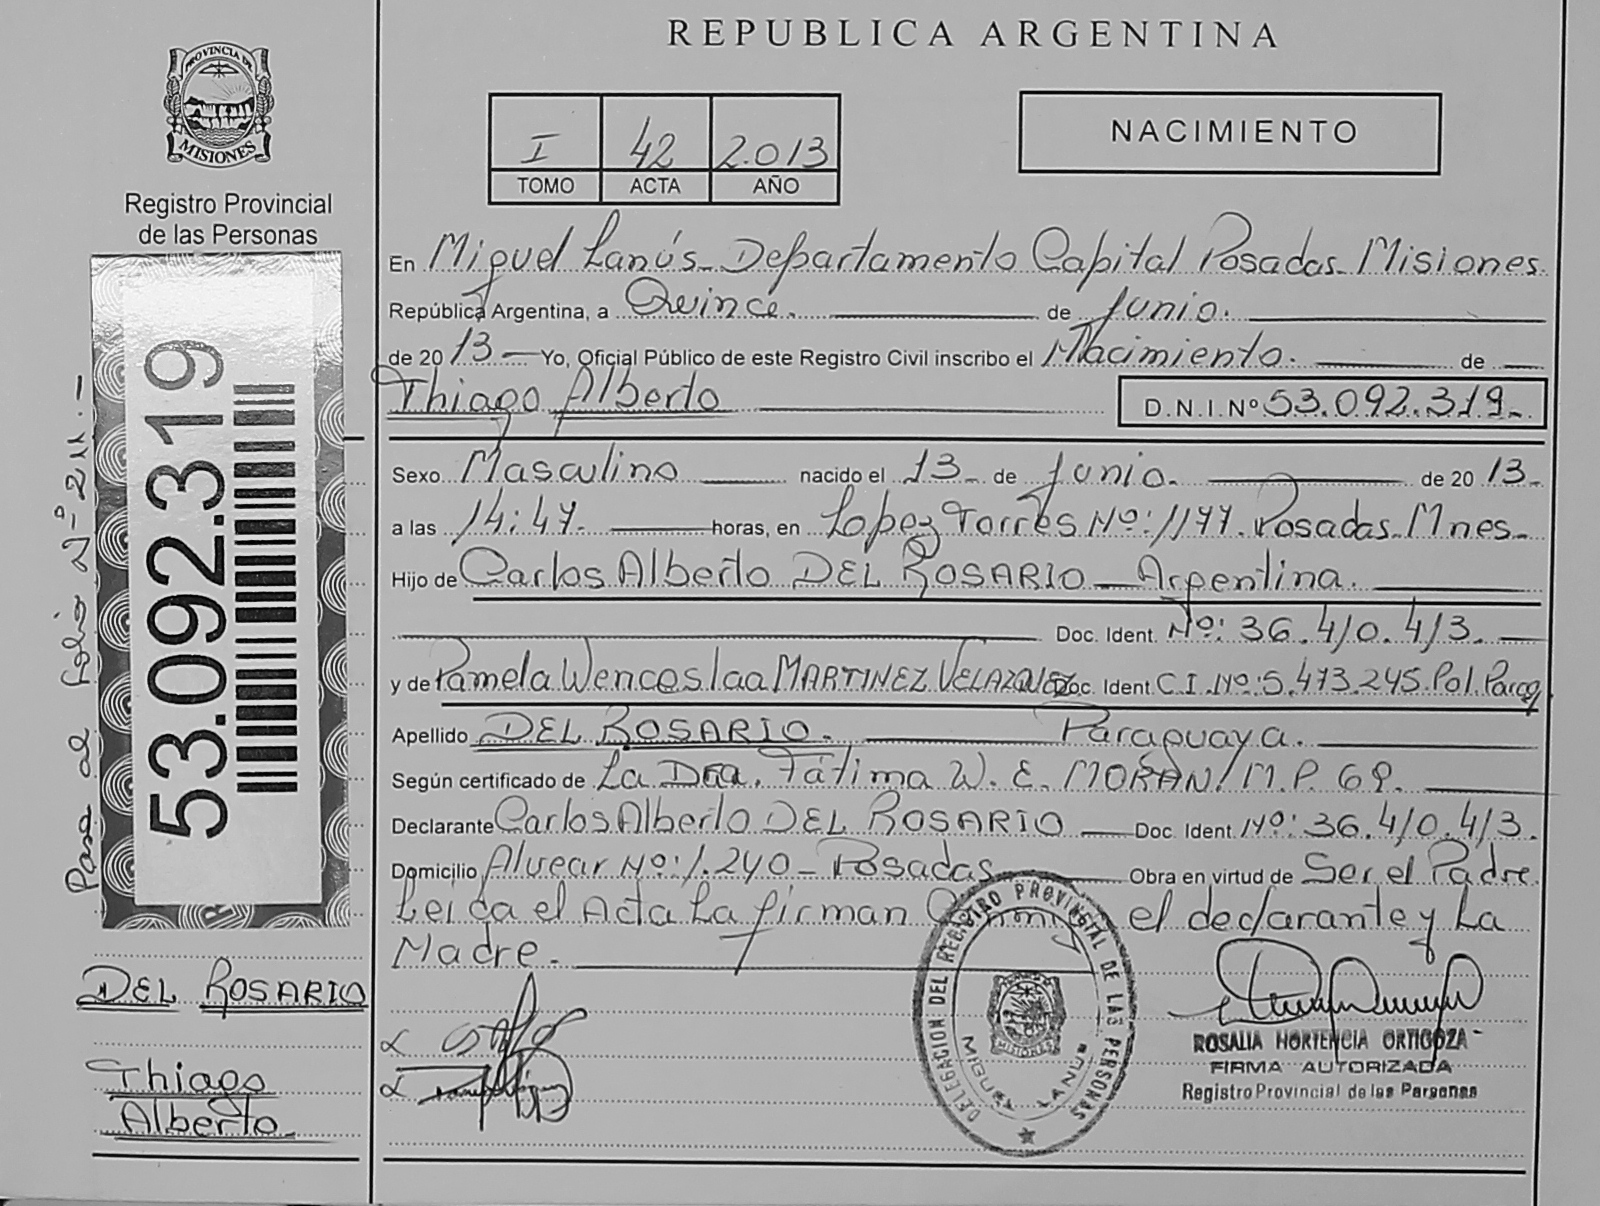 REPUBLICA ARGENTINA
PROVINCIA DE
MISIONES
Registro Provincial
de las Personas
I 42 2.013
TOMO ACTA AÑO
NACIMIENTO
En Miguel Lanús - Departamento Capital Posadas - Misiones.
República Argentina, a Quince. de Junio.
de 20 13 - Yo, Oficial Público de este Registro Civil inscribo el Nacimiento. de
Thiago Alberto D.N.I.Nº 53.092.319.-
Sexo Masculino nacido el 13 - de Junio. de 20 13 -
a las 14:47. horas, en Lopez Torres Nº: 1177. Posadas - Mnes -
Hijo de Carlos Alberto DEL ROSARIO - Argentina.
Doc. Ident. Nº: 36.410.413.
y de Pamela Wenceslaa MARTINEZ VELAZQUEZ Doc. Ident. C.I. Nº: 5.473.245. Pol. Parag
Apellido DEL ROSARIO. Paraguaya.
Según certificado de La Dra. Fátima W. E. MORAN/ M.P. 69.
Declarante Carlos Alberto DEL ROSARIO Doc. Ident. Nº: 36.410.413.
Domicilio Alvear Nº: 1.240 - Posadas Obra en virtud de Ser el Padre.
Leida el Acta La firman el declarante y La
Madre.
53.092.319
Pasa al folio Nº 211.-
DEL ROSARIO
Thiago
Alberto
DELEGACION DEL REGISTRO PROVINCIAL DE LAS PERSONAS
MISIONES
MIGUEL LANUS
ROSALIA HORTENCIA ORTIGOZA
FIRMA AUTORIZADA
Registro Provincial de las Personas